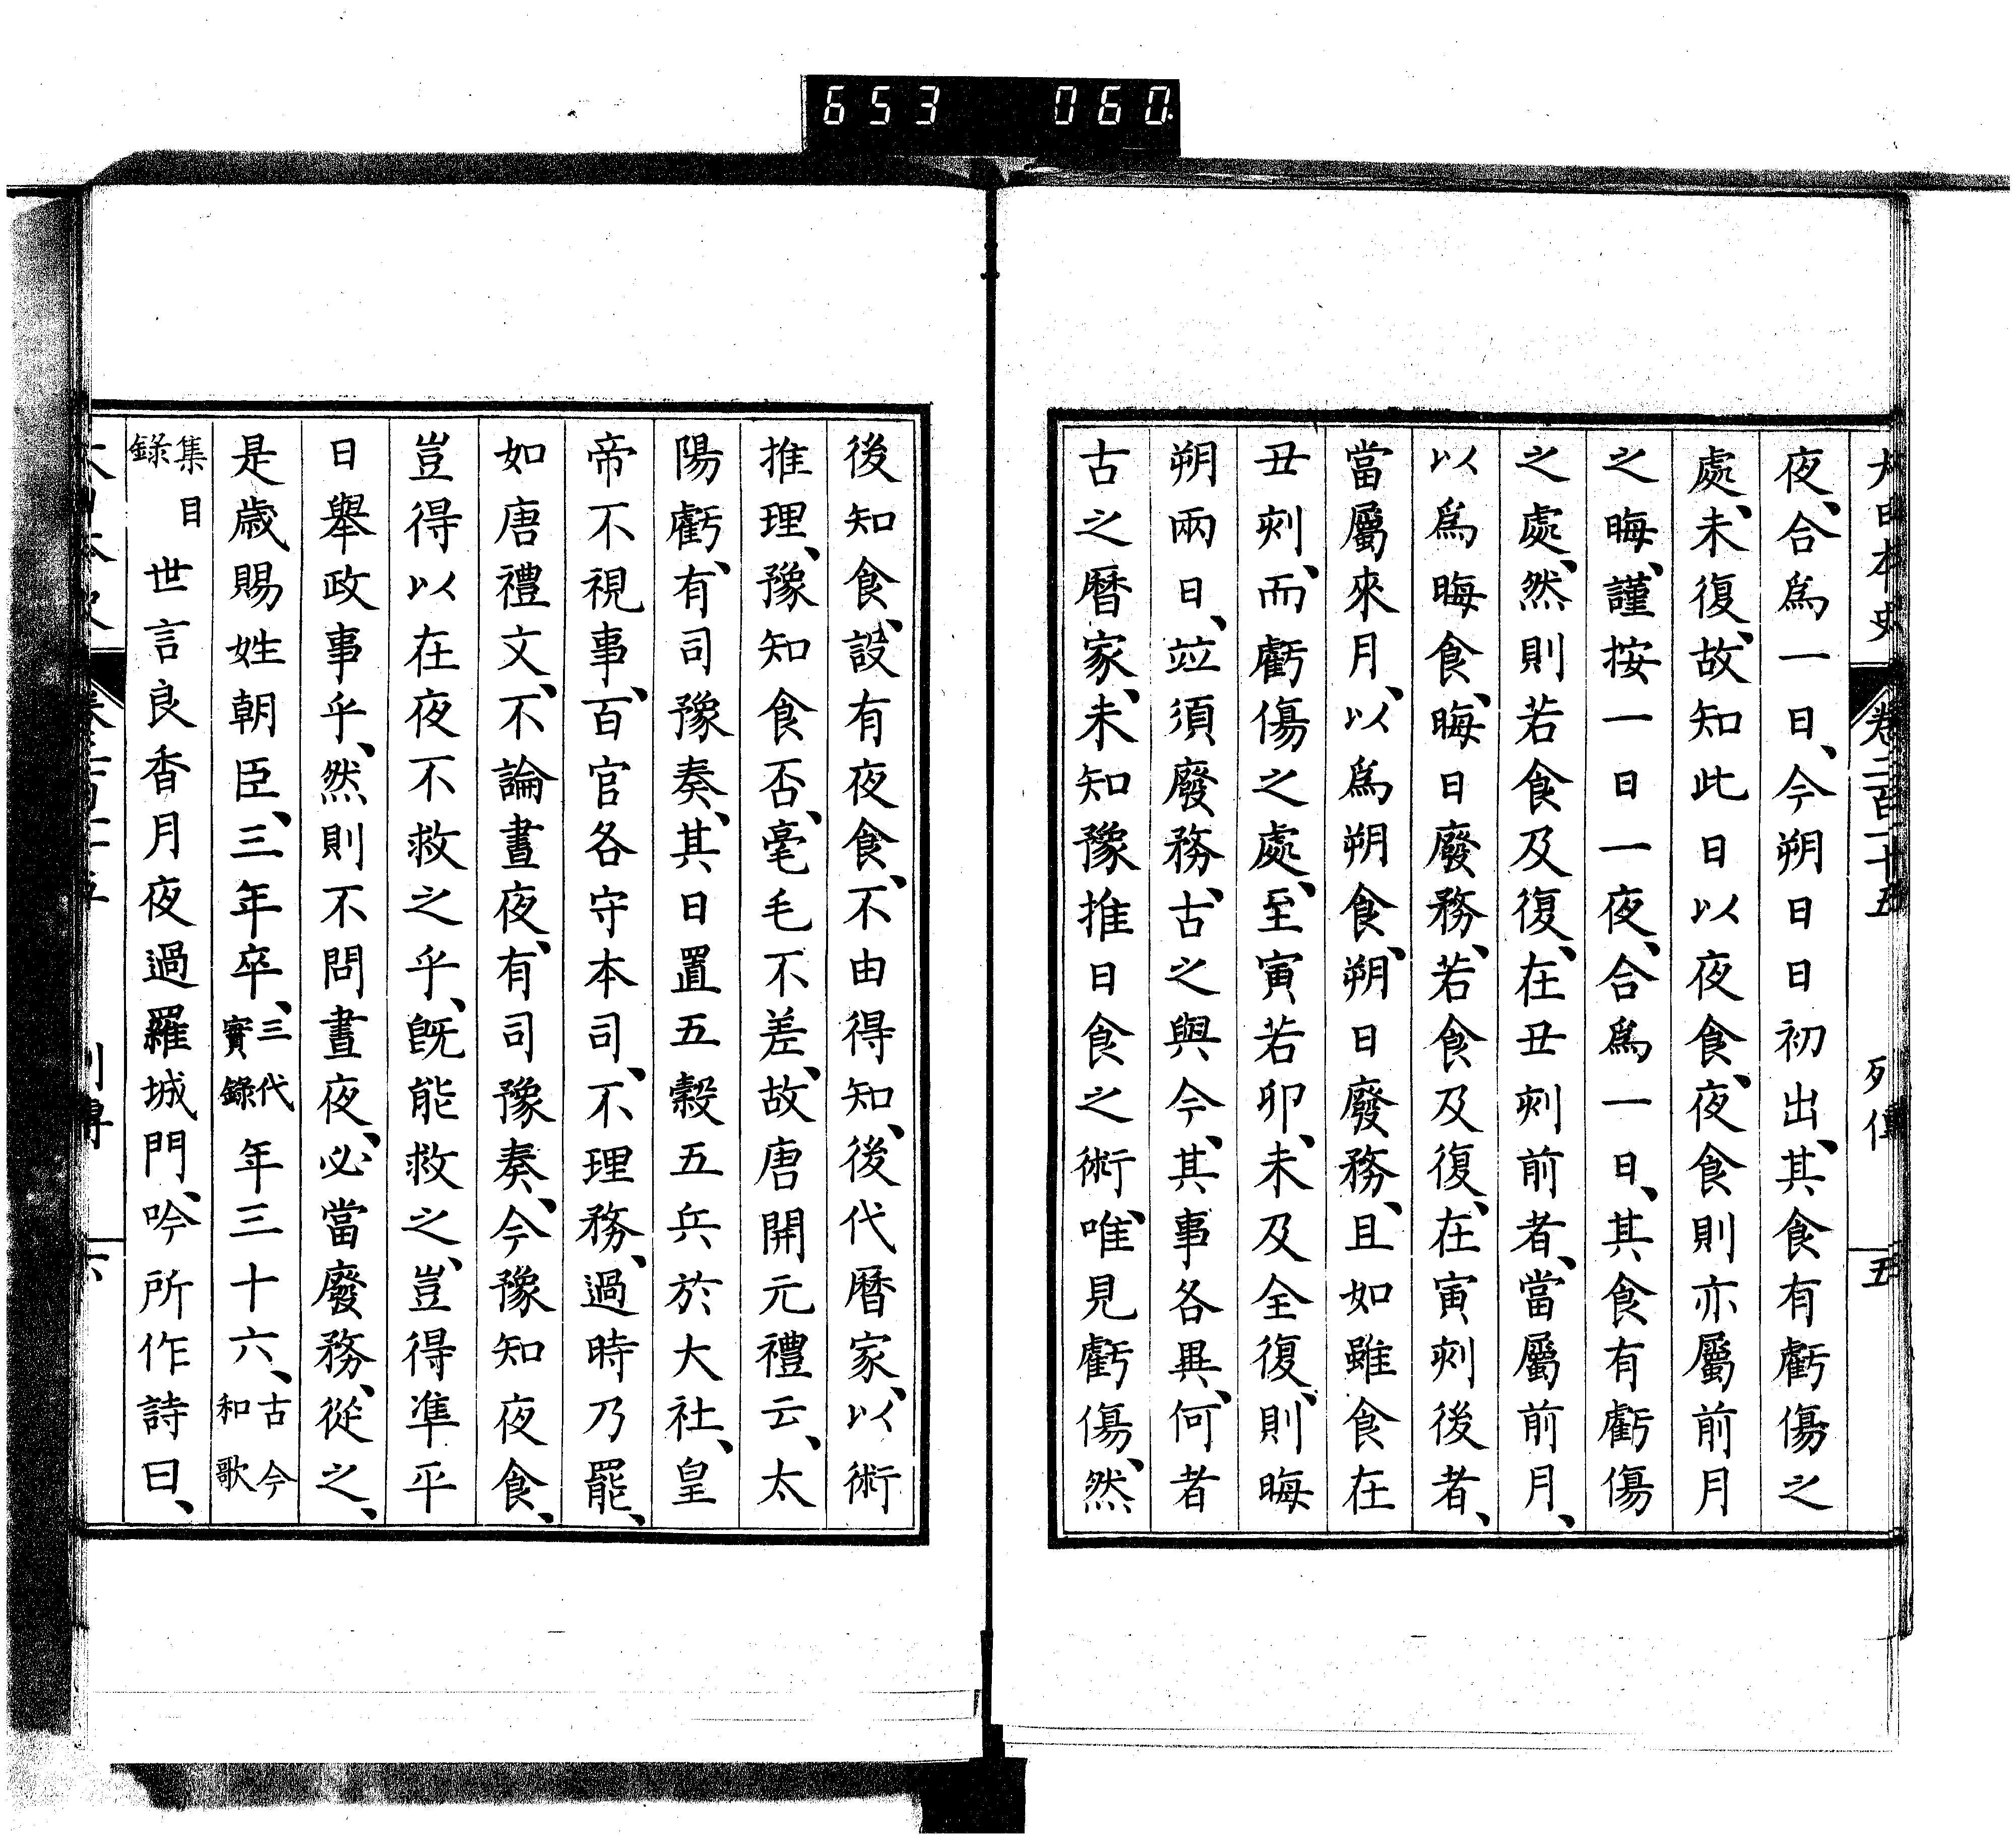 653 060
大日本史 卷二百一十五 列傳 五
夜、合爲一日、今朔日日初出、其食有虧傷之
處、未復、故知此日以夜食、夜食則亦屬前月
之晦、謹按一日一夜、合爲一日、其食有虧傷
之處、然則若食及復、在丑刾前者、當屬前月、
以爲晦食、晦日廢務、若食及復、在寅刾後者、
當屬來月、以爲朔食、朔日廢務、且如雖食在
丑刾、而虧傷之處、至寅若卯、未及全復、則晦
朔兩日、竝須廢務、古之與今、其事各異、何者
古之曆家、未知豫推日食之術、唯見虧傷、然
後知食、設有夜食、不由得知、後代曆家、以術
推理、豫知食否、毫毛不差、故唐開元禮云、太
陽虧、有司豫奏、其日置五穀五兵於大社、皇
帝不視事、百官各守本司、不理務、過時乃罷、
如唐禮文、不論晝夜、有司豫奏、今豫知夜食、
豈得以在夜不救之乎、旣能救之、豈得準平
日舉政事乎、然則不問晝夜、必當廢務、從之、
是歲賜姓朝臣、三年卒、三代實錄年三十六、古今和歌
集目錄世言良香月夜過羅城門、吟所作詩曰、